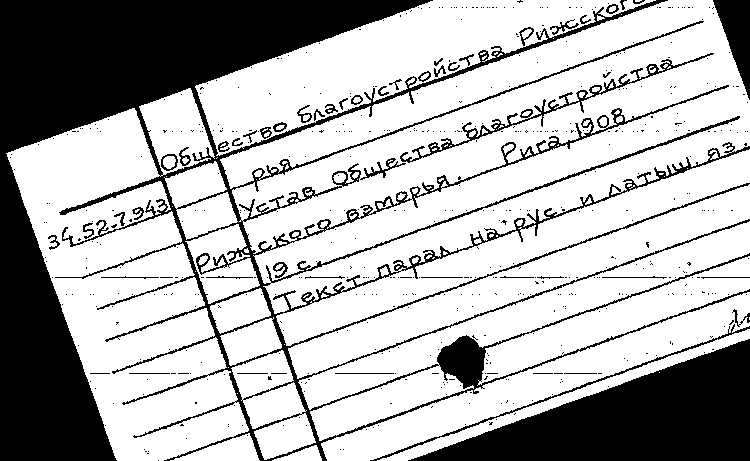 Общество благоустройства Рижского
рья.
34.52.7.943
Устав Общества благоустройства
Рижского взморья. Рига, 1908.
19 с.
Текст парал. на рус. и латыш. яз.